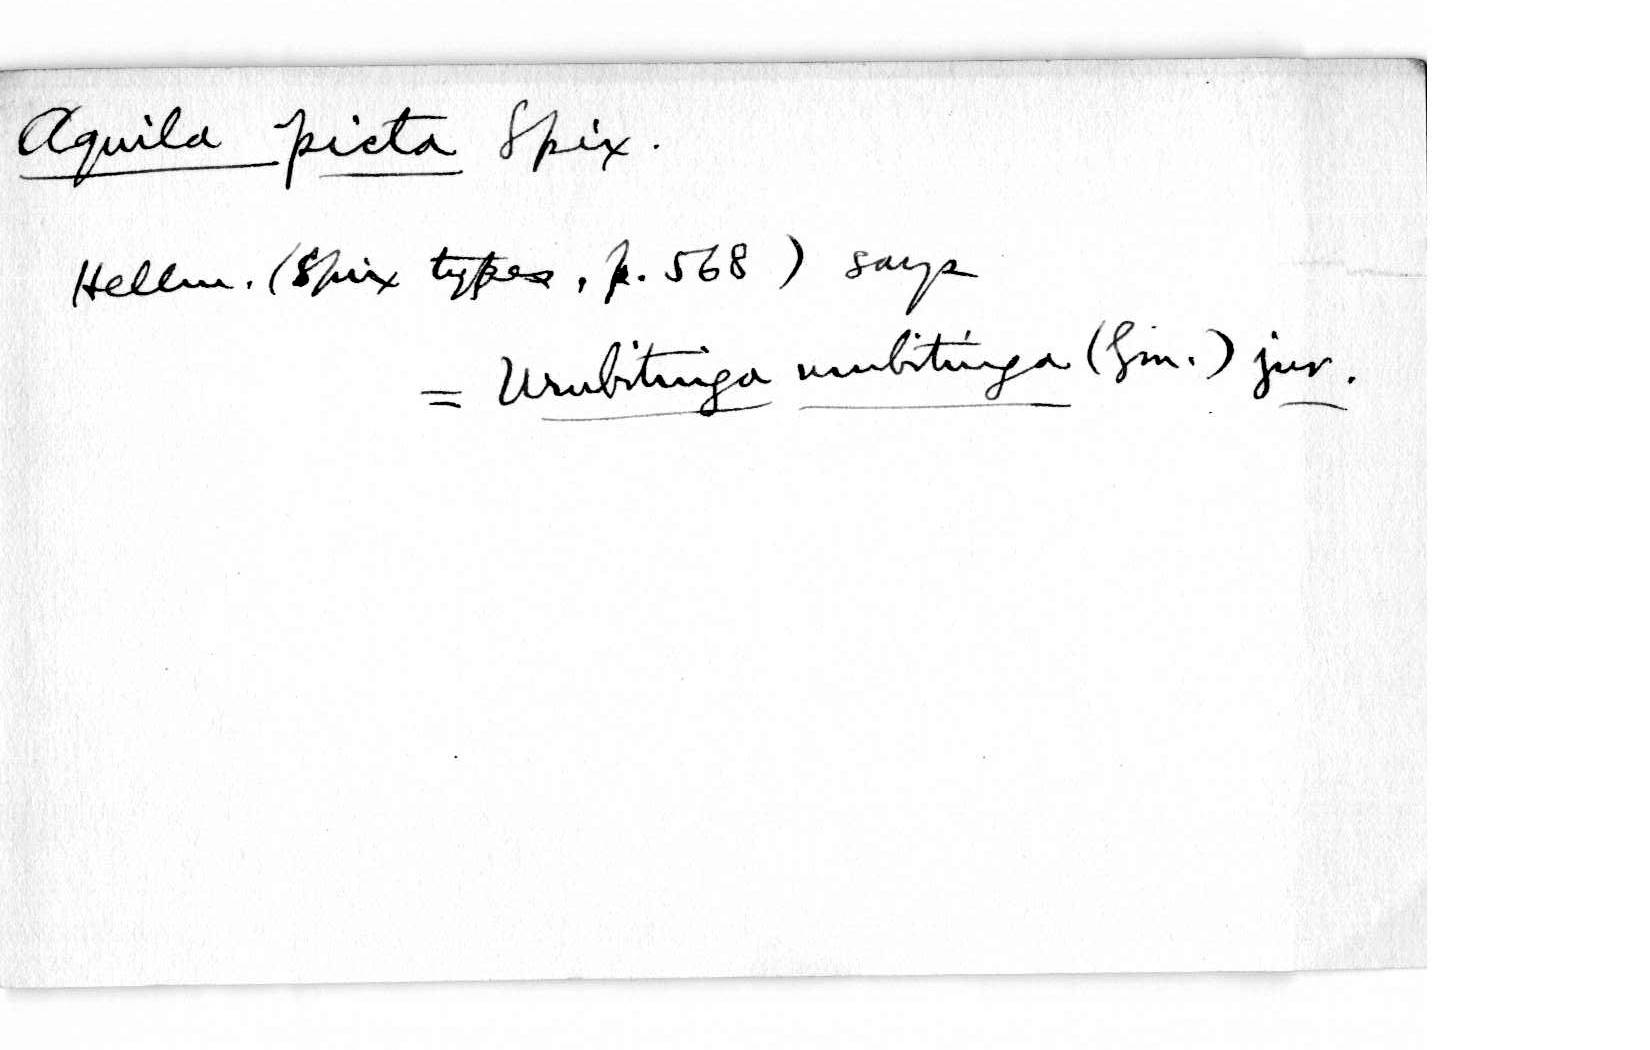 Aquila picta Spix.
Hellm. (Spix types, p. 568) says
= Urubitinga urubitinga (Gm.) juv.